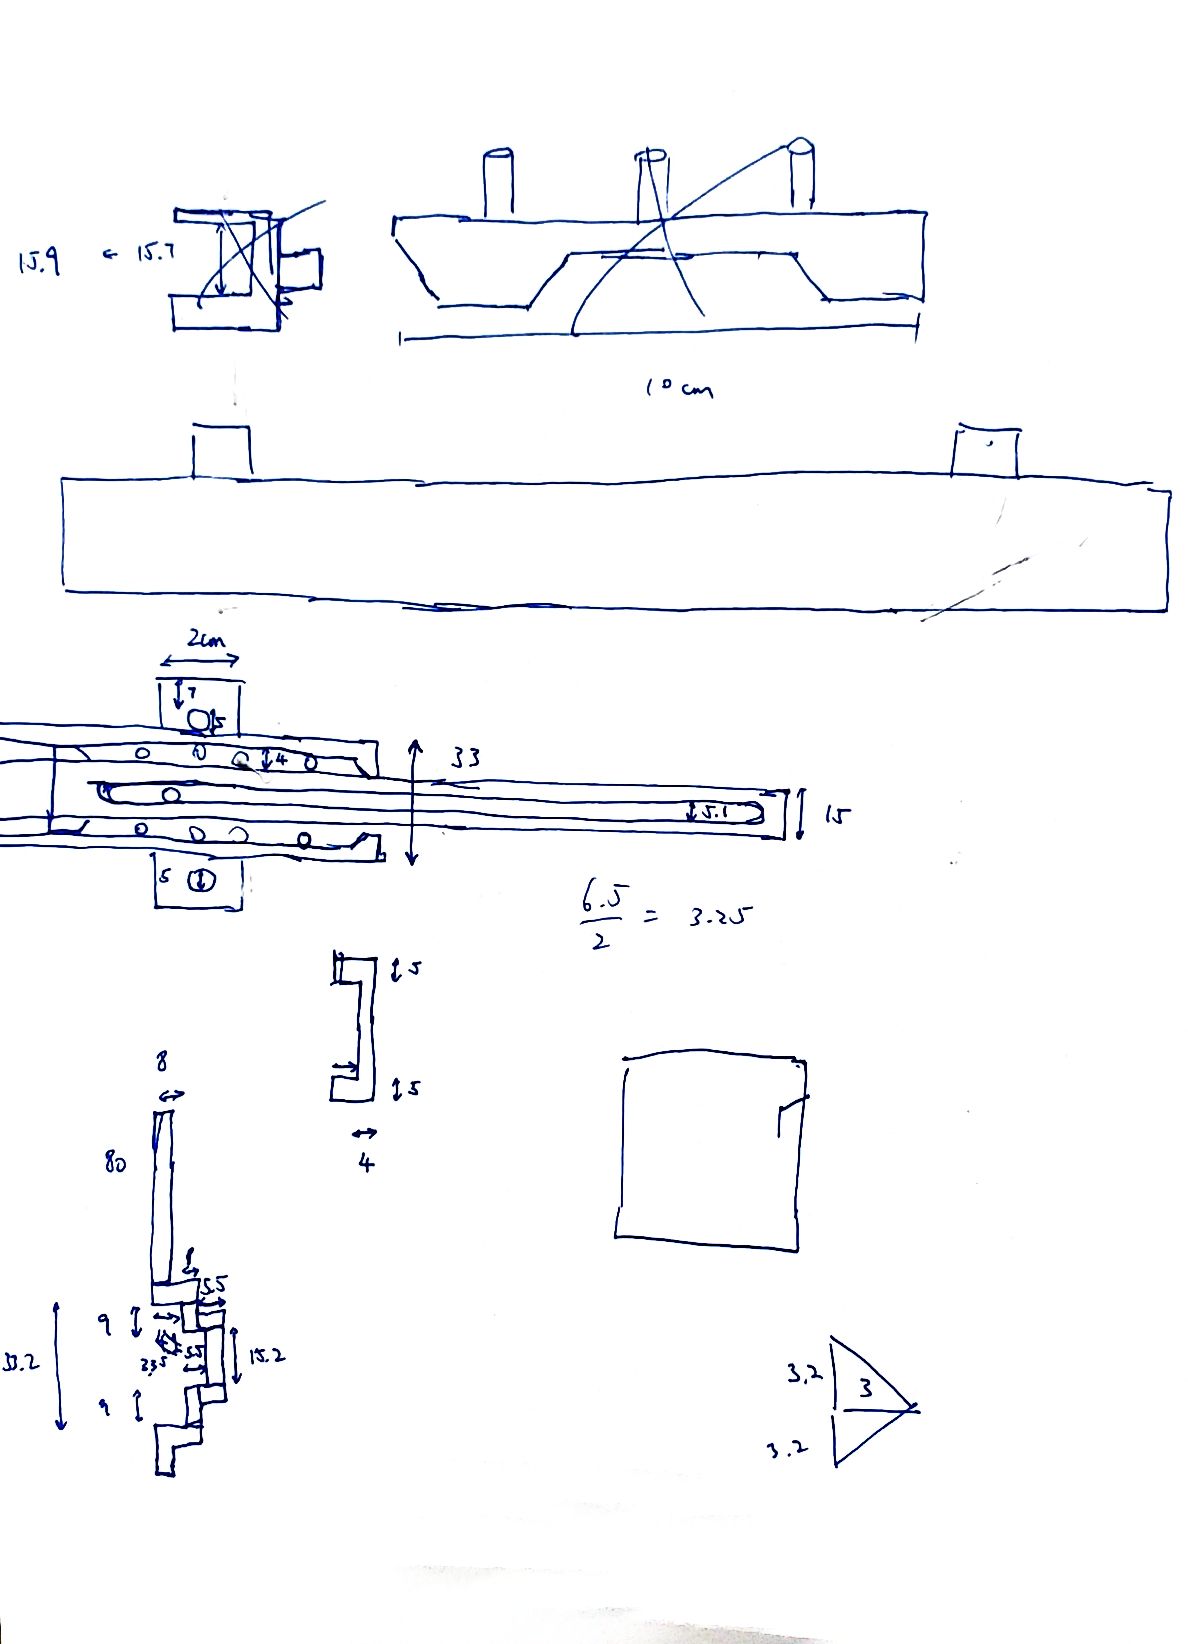 15.9 ← 15.7
10 cm
2cm
7
5
4
33
5.1
15
5
6.5
2
= 3.25
5
8
5
80
4
5.5
9
33.2
5.5
15.2
9
3.2
3
3.2